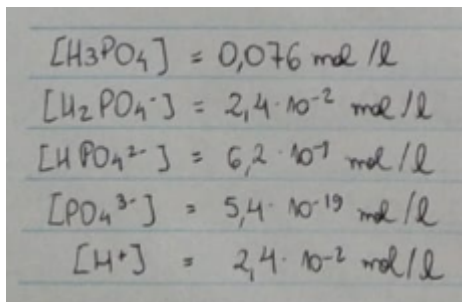 [H3PO4] = 0,076 mol/l
[H2PO4-] = 2,4·10-2 mol/l
[HPO42-] = 6,2·10-1 mol/l
[PO43-] = 5,4·10-19 mol/l
[H+] = 2,4·10-2 mol/l